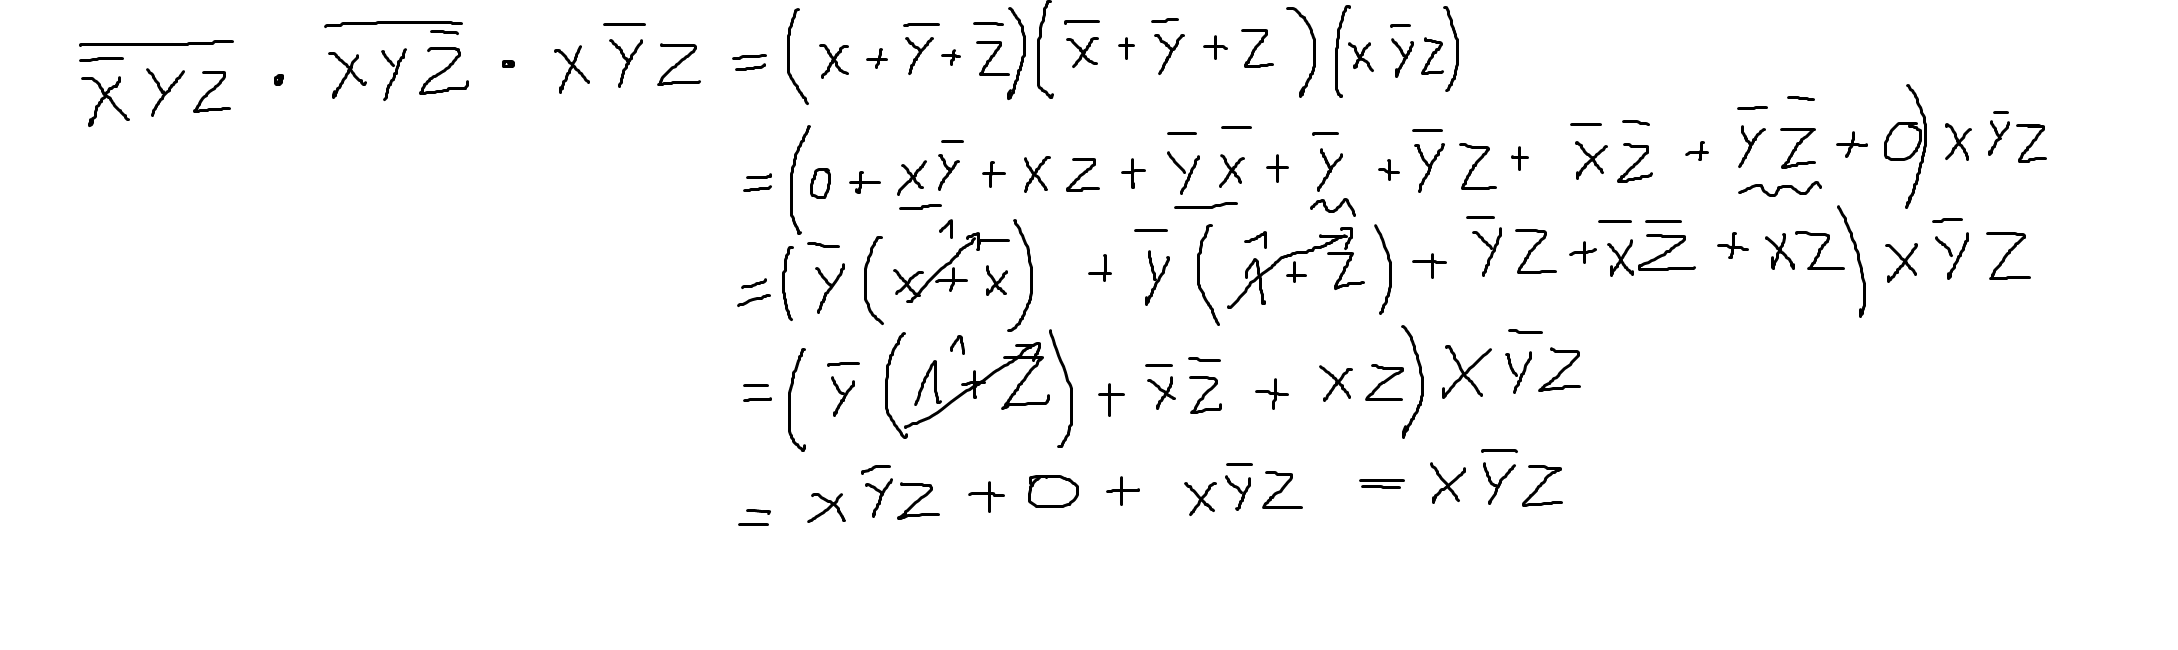 $\overline{\overline{X}YZ} \cdot \overline{XY\overline{Z}} \cdot X\overline{Y}Z = (X+\overline{Y}+\overline{Z})(\overline{X}+\overline{Y}+Z)(X\overline{Y}Z)$
$= (0+X\overline{Y}+XZ+\overline{Y}\,\overline{X}+\overline{Y}+\overline{Y}Z+\overline{X}\,\overline{Z}+\overline{Y}\,\overline{Z}+0)X\overline{Y}Z$
$= (\overline{Y}(\cancelto{1}{X+\overline{X}})+\overline{Y}(\cancelto{1}{1+\overline{Z}})+\overline{Y}Z+\overline{X}\,\overline{Z}+XZ)X\overline{Y}Z$
$= (\overline{Y}(\cancelto{1}{1+Z})+\overline{X}\,\overline{Z}+XZ)X\overline{Y}Z$
$= X\overline{Y}Z+0+X\overline{Y}Z = X\overline{Y}Z$